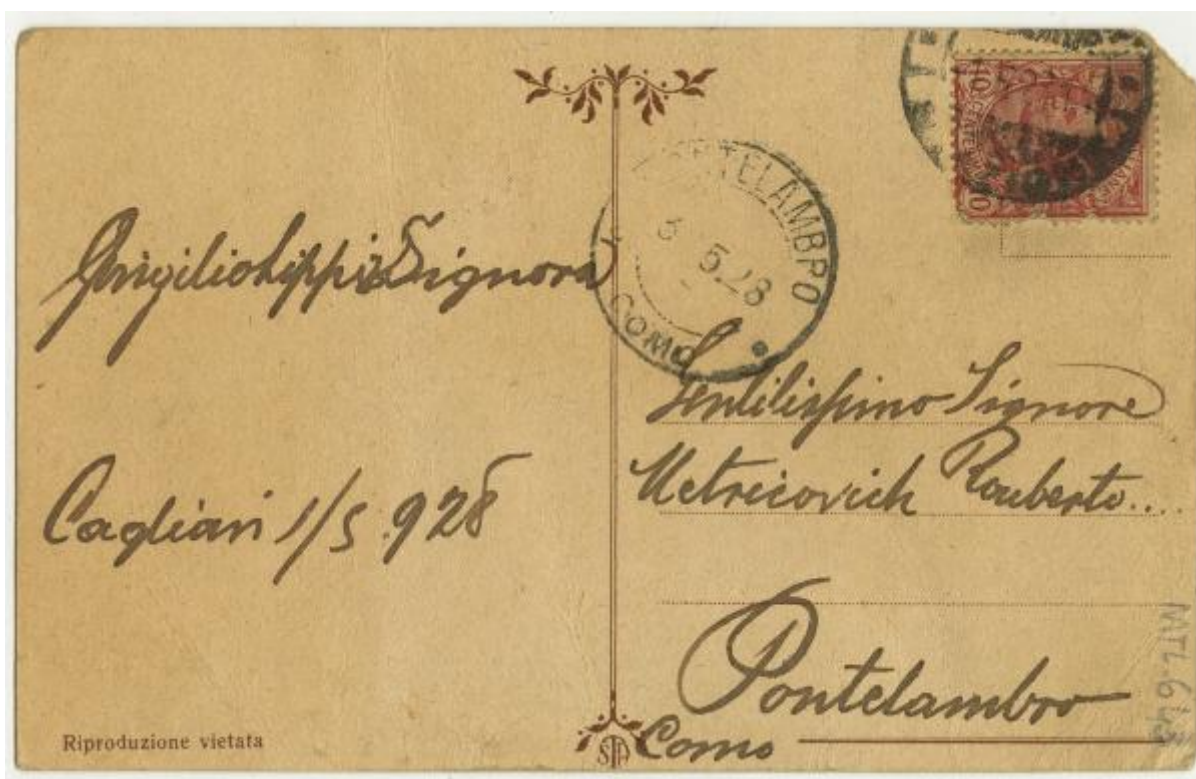 Signora
Cagliari 1/5.928
Riproduzione vietata
PONTELAMBRO
5.28
COMO
10
Gentilissimo Signore
Metricovich Rouberto....
Pontelambro
Como
STA
MTL.643